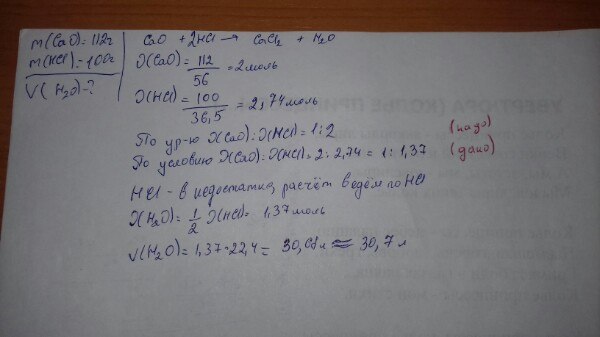 m(CaO)=112г
m(HCl)=100г
V(H₂O)-?
CaO + 2HCl → CaCl₂ + H₂O
ν(CaO)= 112/56 =2моль
ν(HCl)= 100/36,5 = 2,74моль
По ур-ю ν(CaO):ν(HCl)=1:2 (надо)
По условию ν(CaO):ν(HCl)=2:2,74=1:1,37 (дано)
HCl - в недостатке, расчёт ведём по HCl
ν(H₂O)= 1/2 ν(HCl)= 1,37моль
V(H₂O)=1,37·22,4= ≈ 30,7 л